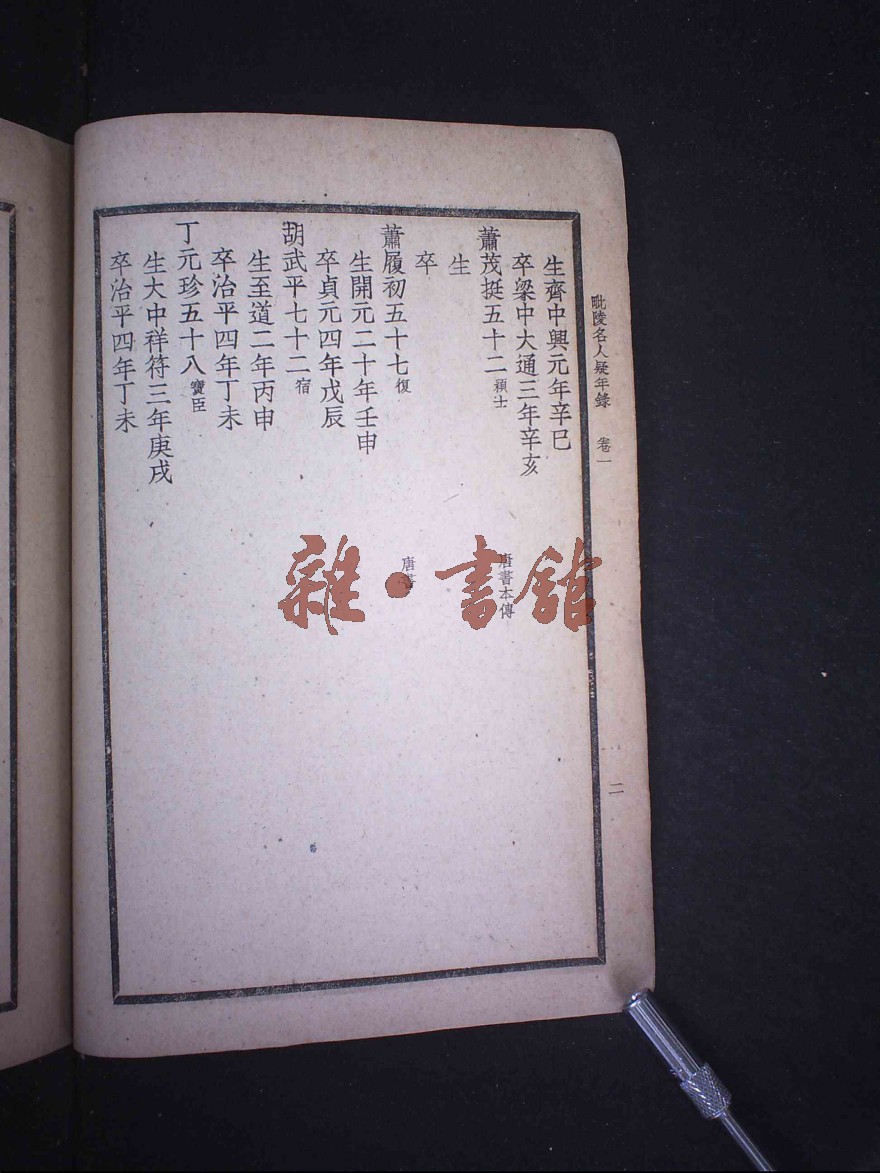 毗陵名人疑年錄 卷一
二
生齊中興元年辛巳
卒梁中大通三年辛亥
蕭茂挺五十二 穎士 唐書本傳
生
卒
蕭履初五十七 復 唐書
生開元二十年壬申
卒貞元四年戊辰
胡武平七十二 宿
生至道二年丙申
卒治平四年丁未
丁元珍五十八 寶臣
生大中祥符三年庚戌
卒治平四年丁未
雜·書館